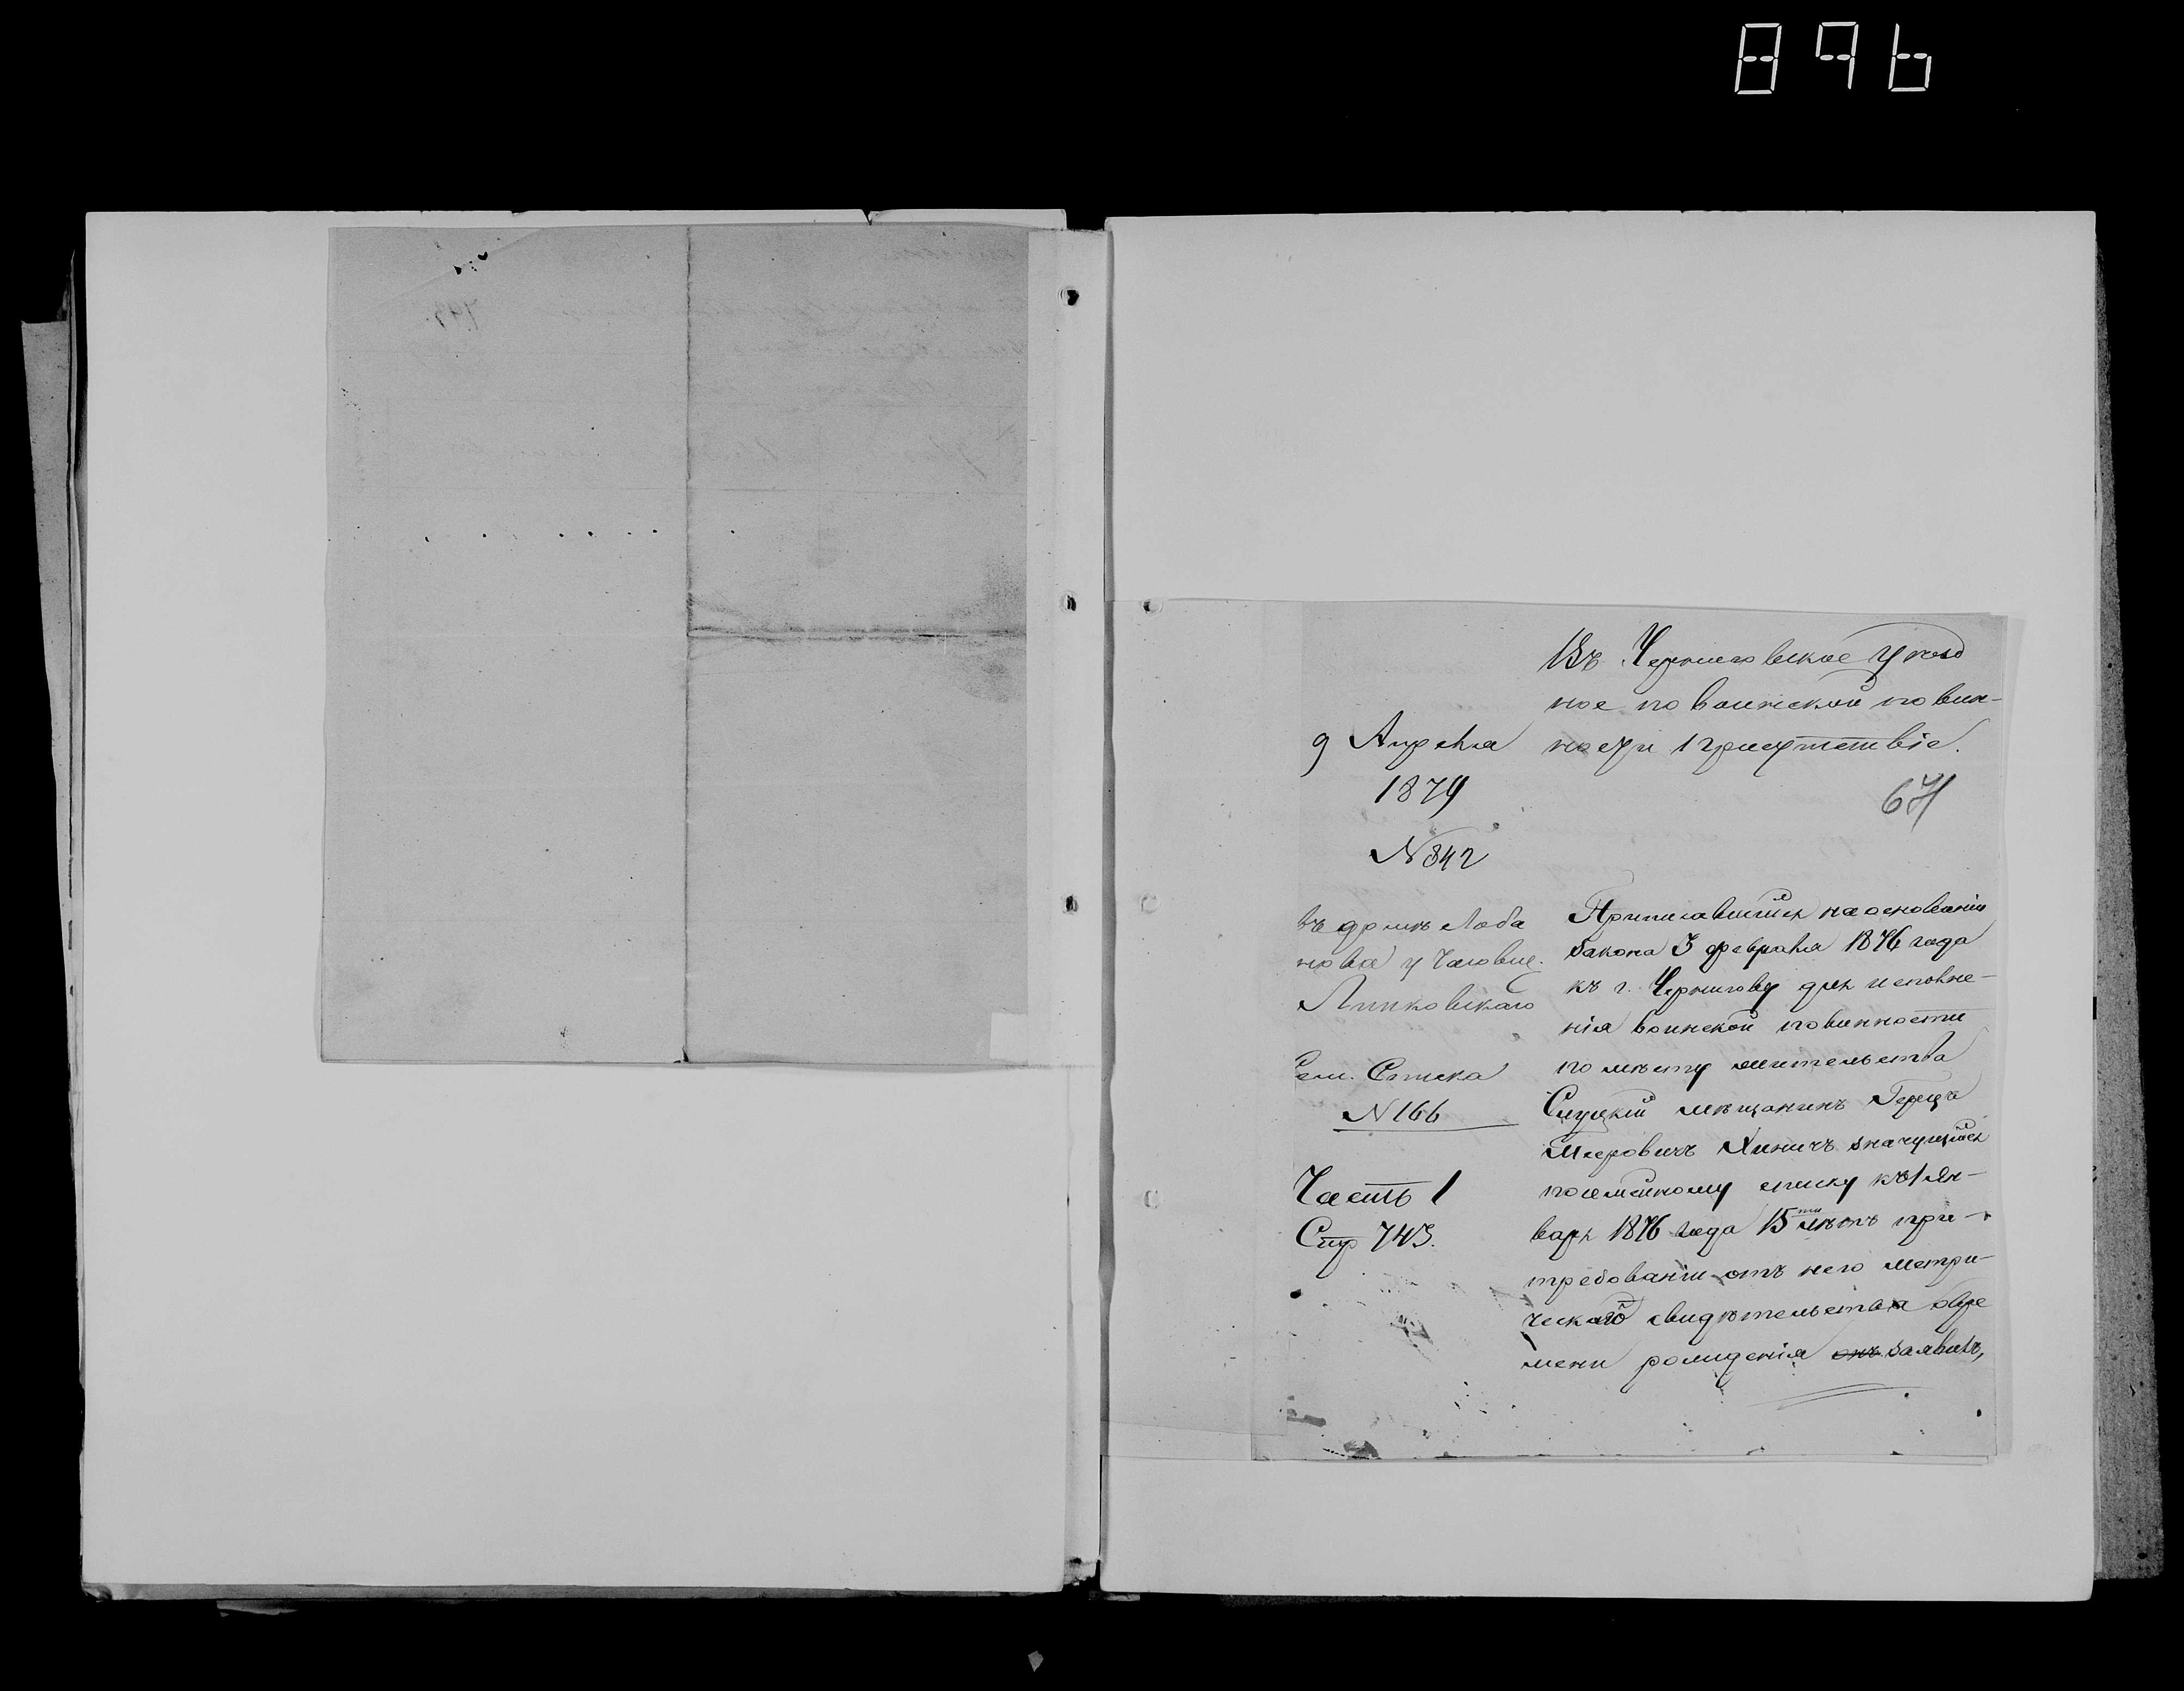 896
Въ Черниговское Уѣзд
ное по воинской повин-
ности Присутствіе.
9 Апрѣля
1879
N 842
въ домѣ Лоба
нова у Часовщ.
Липковскаго
Сем. Списка
N 166
Часть 1
Стр 743.
Приписавшійся на основаніи
закона 3 февраля 1876 года
къ г. Чернигову для исполне-
нія воинской повинности
по мѣсту жительства
Слуцкій мѣщанинъ Герцъ
Мееровичъ Хиничъ значущійся
посемейному списку къ 1 Ян-
варя 1876 года 15ти лѣтъ при-
требованіи отъ него метри-
ческаго свидѣтельства овре
мени рожденія онъ заявилъ,